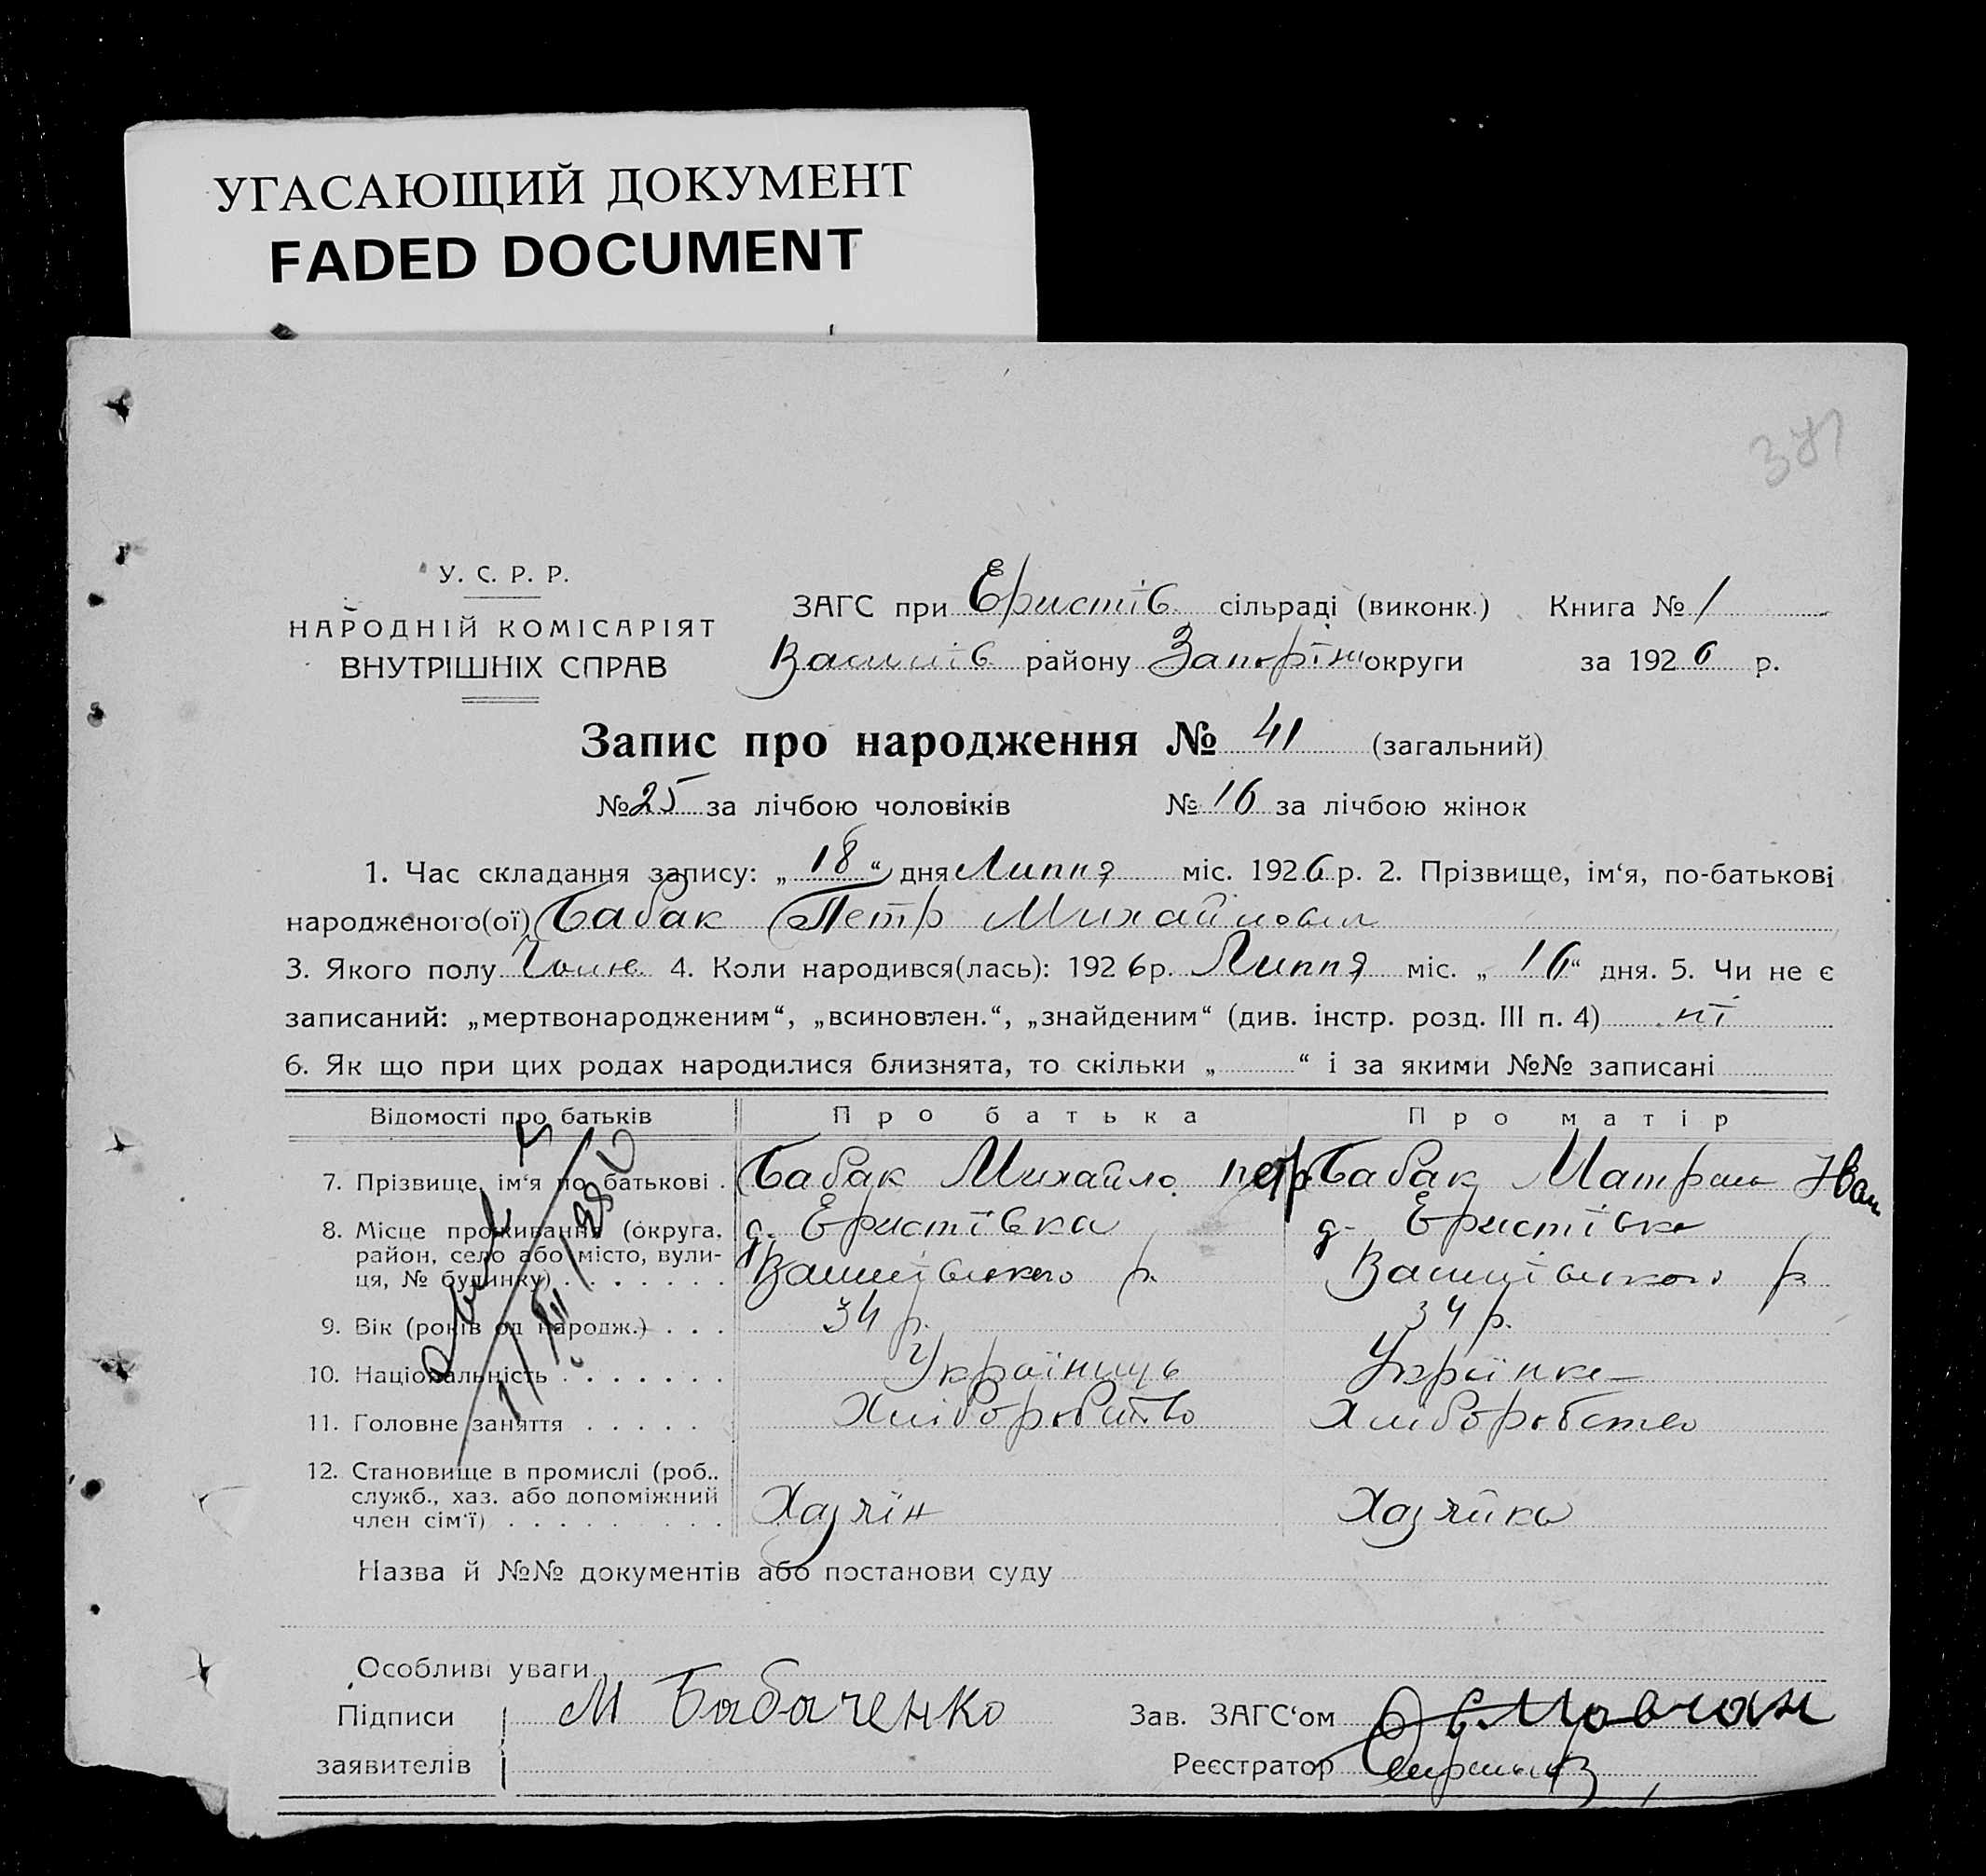 УГАСАЮЩИЙ ДОКУМЕНТ
FADED DOCUMENT
У. С. Р. Р.
НАРОДНІЙ КОМІСАРІЯТ
ВНУТРІШНІХ СПРАВ
ЗАГС при Еристів сільраді (виконк.) Книга № 1
району Запоріж округи за 1926 р.
Запис про народження № 41 (загальний)
№ 25 за лічбою чоловіків № 16 за лічбою жінок
1. Час складання запису: „18“ дня Липня міс. 1926 р. 2. Прізвище, ім‘я, по-батькові
народженого(ої) Бабак Петр Михайлович
3. Якого полу 4. Коли народився(лась): 1926 р. Липня міс. „16“ дня. 5. Чи не є
записаний: „мертвонародженим“, „всиновлен.“, „знайденим“ (див. інстр. розд. III п. 4) ні
6. Як що при цих родах народилися близнята, то скільки „ “ і за якими №№ записані
Відомості про батьків Про батька Про матір
7. Прізвище, ім‘я по-батькові . Бабак Михайло Петр Бабак Иван
8. Місце проживання (округа, район, село або місто, вулиця, № будинку) . . . . . . . с. Еристівка р. Еристівка р
9. Вік (років од народж.) . . . 34 р. 34 р.
10. Національність . . . . . . . Українець Українка
11. Головне заняття . . . . . Хліборобство Хліборобство
12. Становище в промислі (роб., служб., хаз. або допоміжний член сім‘ї) . . . . . . . . . Хазяїн Хазяйка
Назва й №№ документів або постанови суду
Особливі уваги
Підписи М Бабаченко Зав. ЗАГС‘ом Мовчан
заявителів Реєстратор